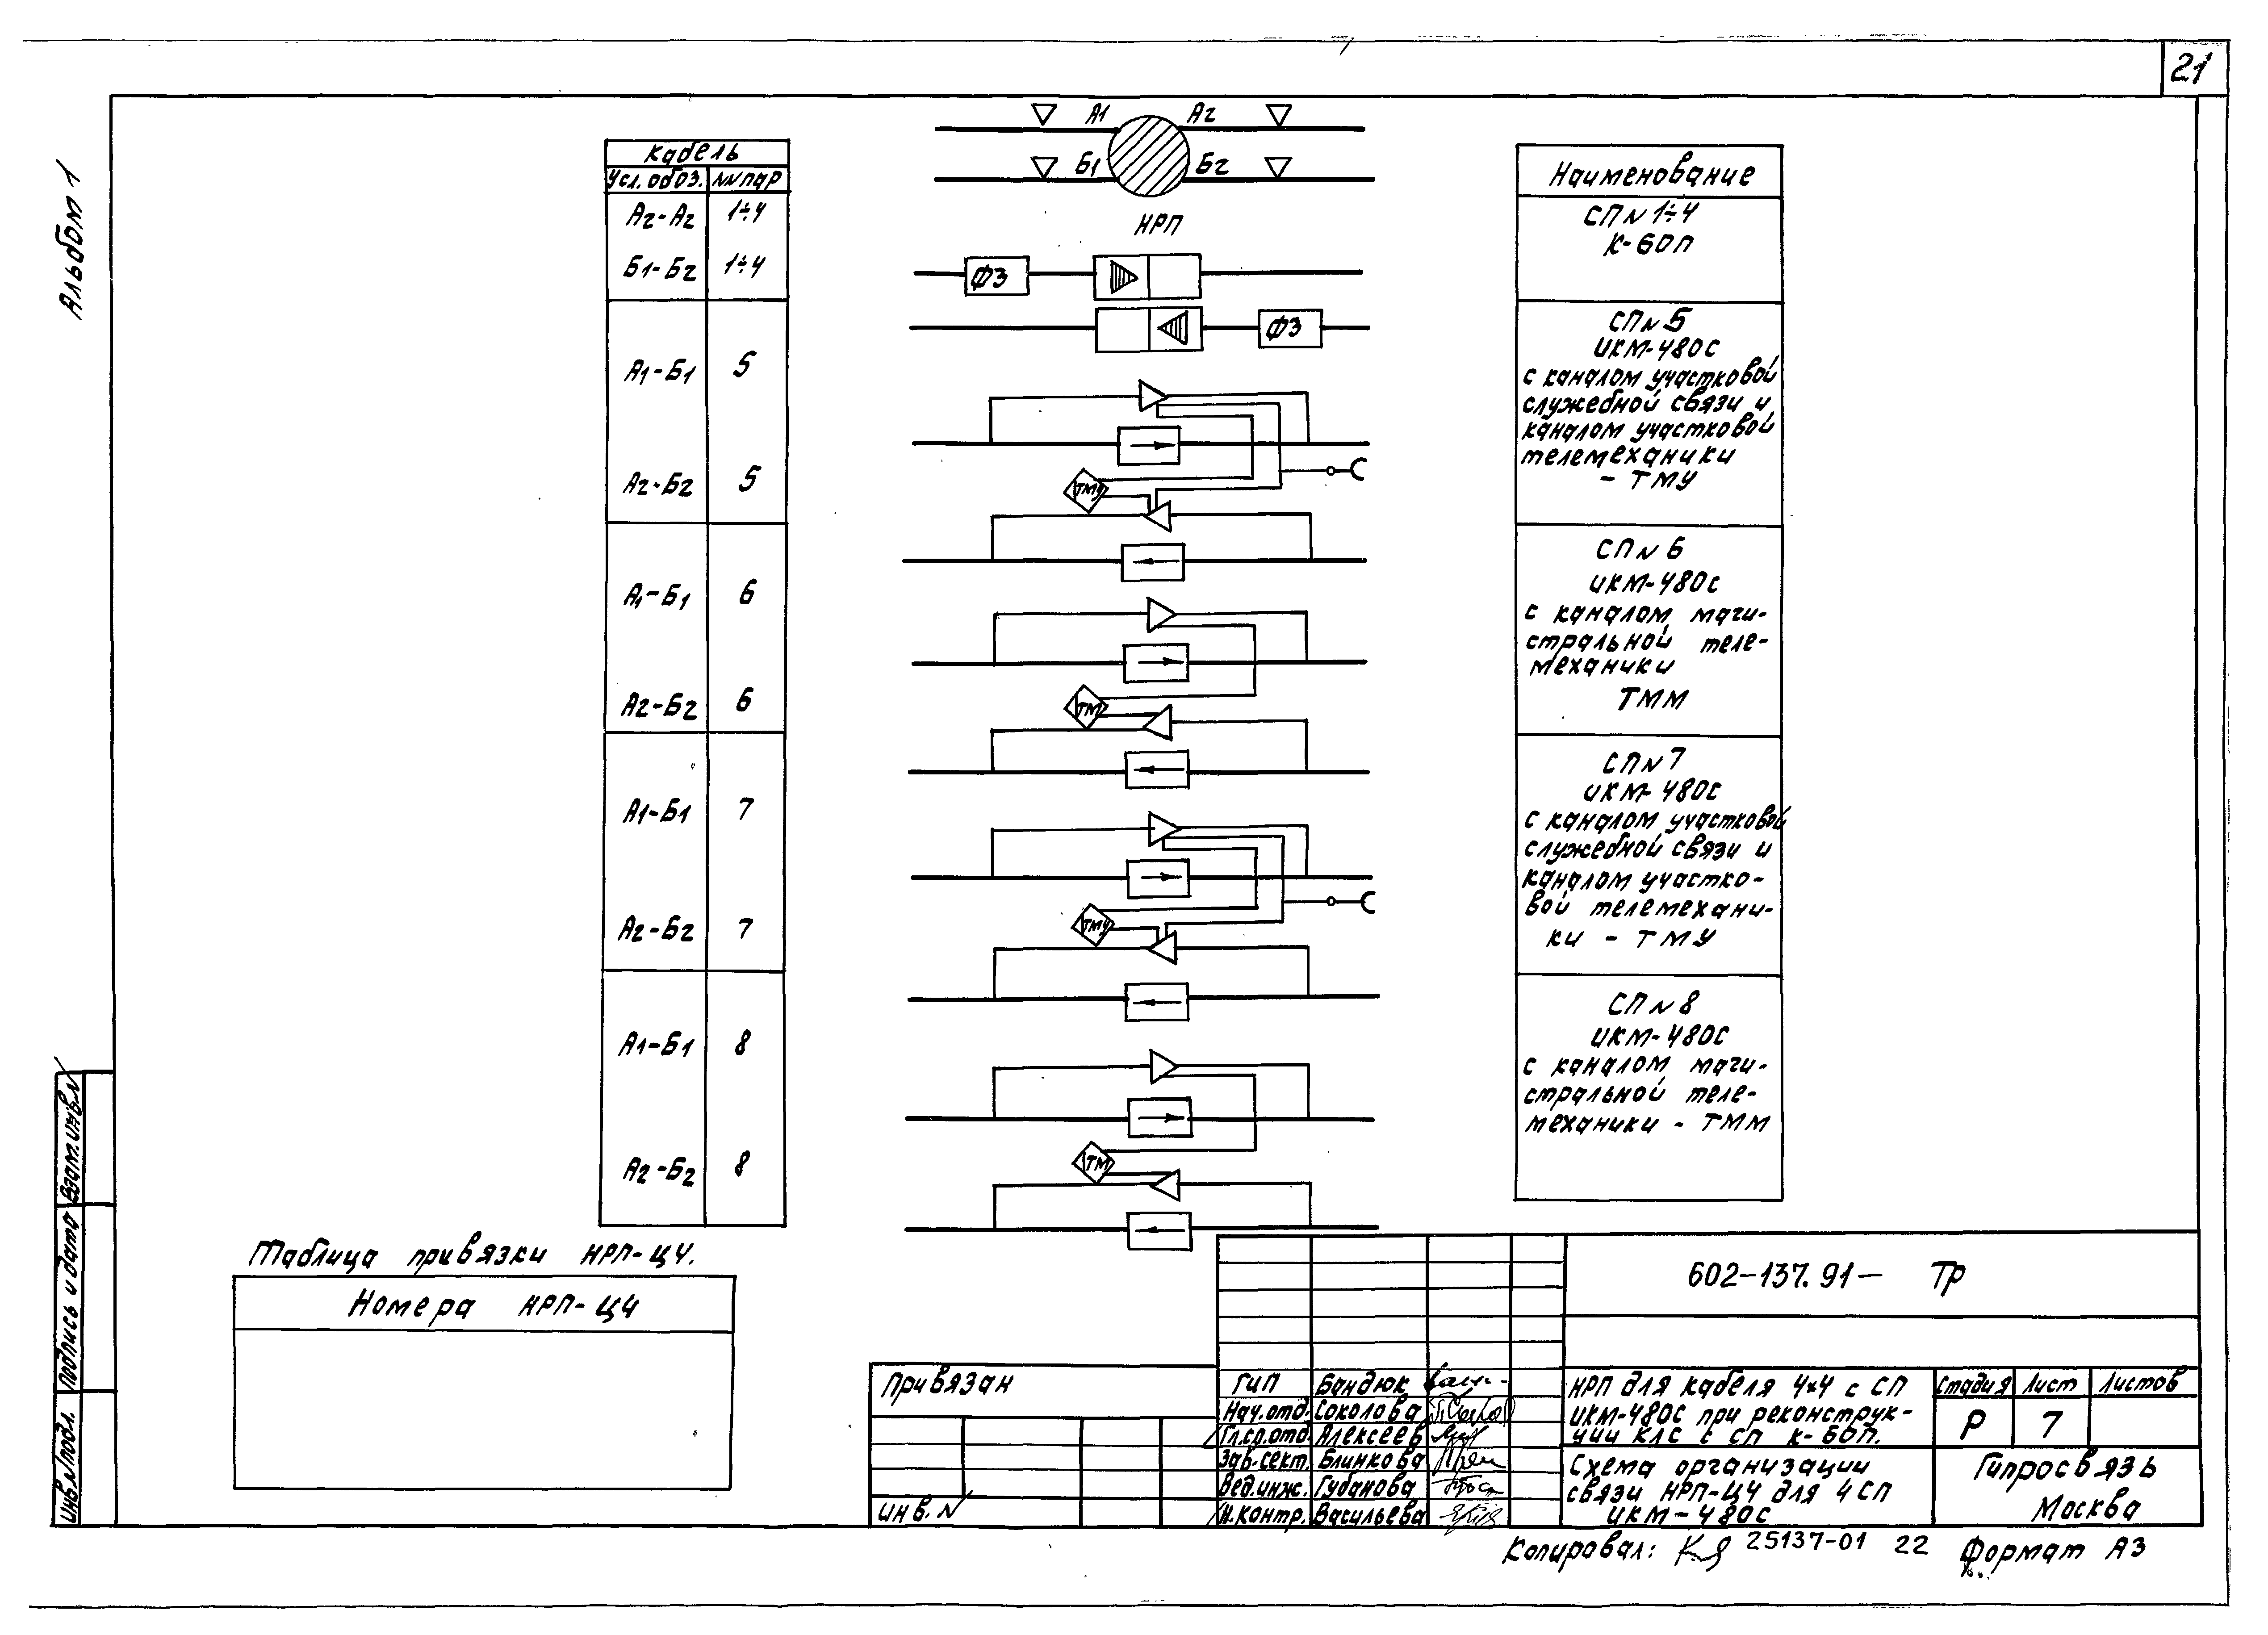 21
Альбом 1
Кабель
Усл. обоз. NN пар
А2-А2 1÷4
Б1-Б2 1÷4
А1-Б1 5
А2-Б2 5
А1-Б1 6
А2-Б2 6
А1-Б1 7
А2-Б2 7
А1-Б1 8
А2-Б2 8
А1 А2
Б1 Б2
НРП
ФЗ
ФЗ
ТМУ
ТМ
ТМУ
ТМ
Наименование
СП N 1÷4
К-60П
СП N 5
ИКМ-480С
с каналом участковой
служебной связи и
каналом участковой
телемеханики
- ТМУ
СП N 6
ИКМ-480С
с каналом маги-
стральной теле-
механики
ТММ
СП N 7
ИКМ-480С
с каналом участковой
служебной связи и
каналом участко-
вой телемехани-
ки - ТМУ
СП N 8
ИКМ-480С
с каналом маги-
стральной теле-
механики - ТММ
Таблица привязки НРП-Ц4.
Номера НРП-Ц4
Взам. инв. N
Подпись и дата
Инв. N подл.
Привязан
Инв. N
602-137.91- ТР
ГИП Бандюк
Нач. отд. Соколова
Гл.ср.отд. Алексеев
Зав. сект. Блинкова
Вед. инж. Губанова
Н. контр. Васильева
НРП для кабеля 4×4 с СП
ИКМ-480С при реконструк-
ции КЛС с СП К-60П.
Стадия Лист Листов
Р 7
Схема организации
связи НРП-Ц4 для 4 СП
ИКМ-480С
Гипросвязь
Москва
Копировал: 25137-01 22 Формат А3